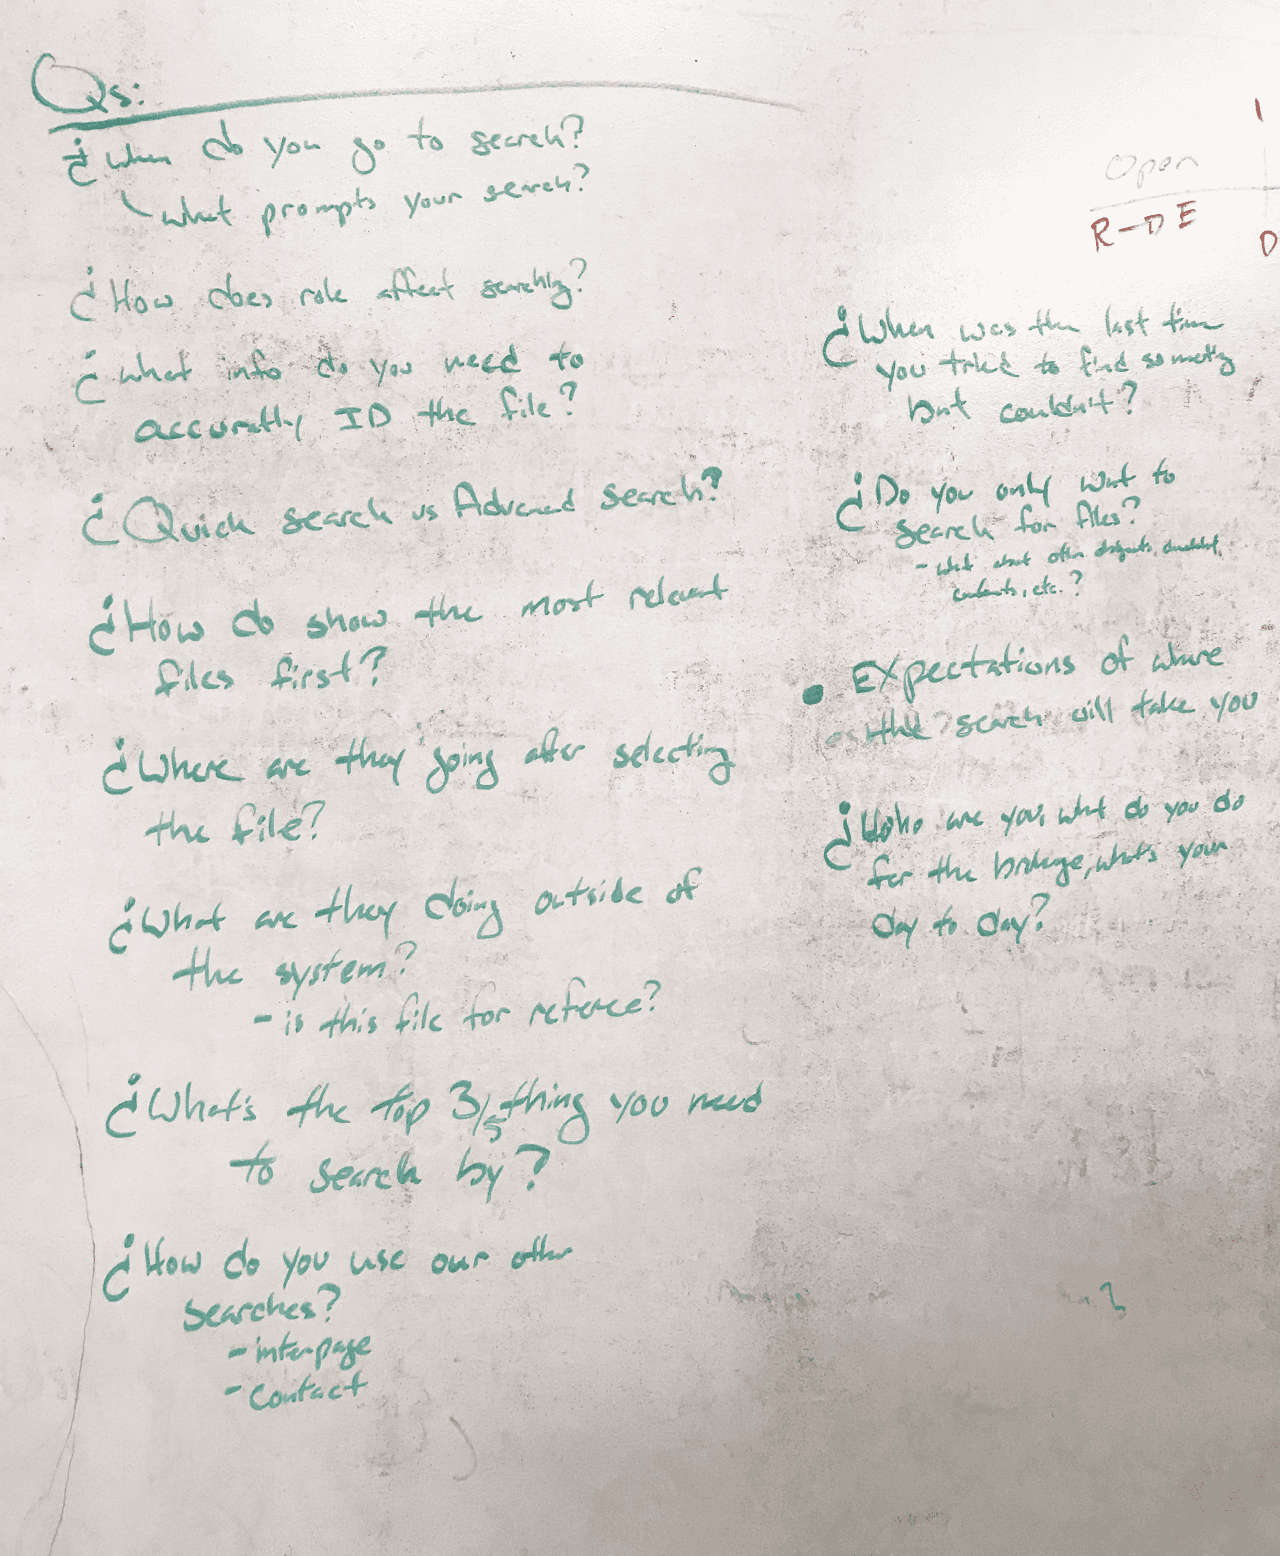 Qs:
¿When do you go to search?
what prompts your search?
¿How does role affect searching?
¿what info do you need to
accurately ID the file?
¿Quick search vs Advanced search?
¿How do show the most relevant
files first?
¿Where are they going after selecting
the file?
¿What are they doing outside of
the system?
- is this file for refence?
¿What's the top 3/5 thing you need
to search by?
¿How do you use our other
searches?
- interpage
- contact
Open
R-DE
D
¿When was the last time
you tried to find someting
but couldn't?
¿Do you only want to
search for files?
- what about other
etc.?
• Expectations of where
the search will take you
¿Who are you, what do you do
for the brokerage, what's your
day to day?